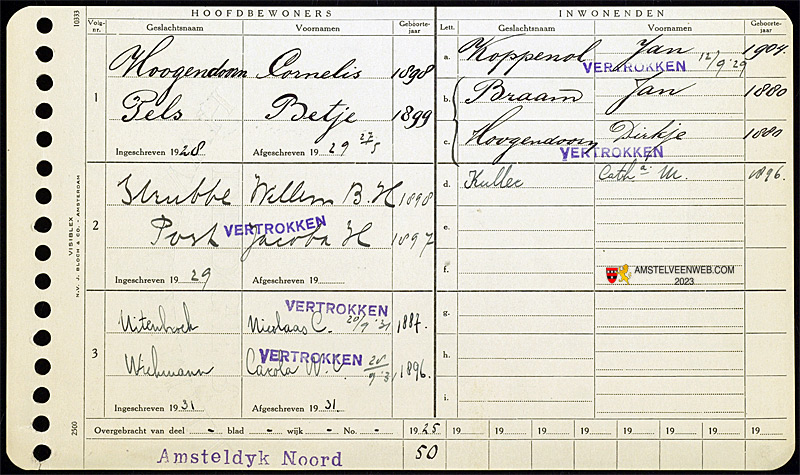 10333
HOOFDBEWONERS
Volg-nr. Geslachtsnaam Voornamen Geboorte-jaar
1
Hoogendoorn Cornelis 1898
Pels Betje 1899
Ingeschreven 1928 Afgeschreven 1929 27/5
2
Strubbe Willem B. H 1898
Post Jacoba H 1897
VERTROKKEN
Ingeschreven 1929 Afgeschreven 19
3
VERTROKKEN
Uitenbroek Nicolaas C. 20/9 '31 1887.
VERTROKKEN
Wiehmann Carola W. C. 28/9 '31 1896.
Ingeschreven 1931 Afgeschreven 1931.
INWONENDEN
Lett. Geslachtsnaam Voornamen Geboorte-jaar
a. Koppenol Jan 12/9 '29 1904.
VERTROKKEN
b. Braam Jan 1880
c. Hoogendoorn Dirkje 1880
VERTROKKEN
d. Kullee Cath.a M. 1896.
e.
f.
g.
h.
i.
AMSTELVEENWEB.COM
2023
Overgebracht van deel - blad - wijk - No. - 1925 19 19 19 19 19 19 19 19
50
Amsteldyk Noord
VISIBLEX
N.V. J. BLOCH & CO. - AMSTERDAM
2500